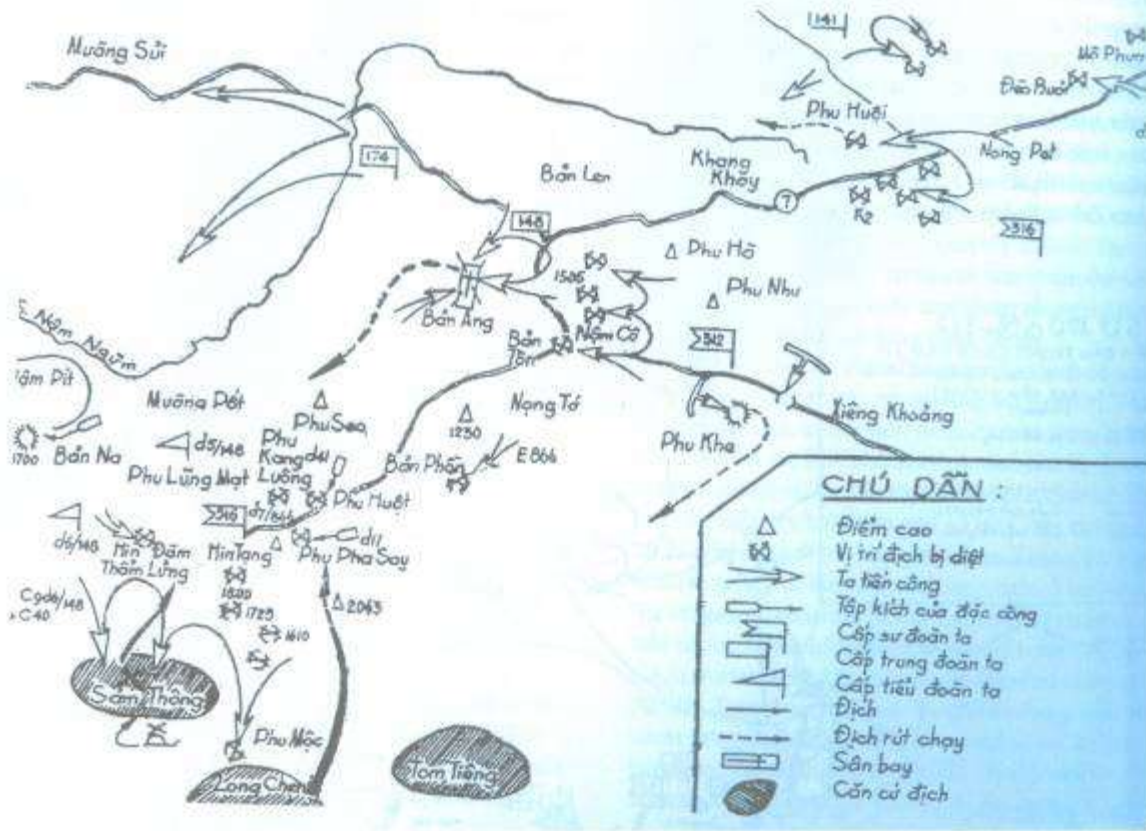 Mường Sủi
141
Đèo Bướt
Phu Huội
Nong Pet
174
Bản Len
Khang Khảy
7
K2
316
148
Phu Hô
1505
Phu Nhu
Bản Áng
Nậm Cô
Bản Tôn
312
Nậm Ngừm
Mường Pót
Phu Seo
Nọng Tó
1230
Xiêng Khoảng
Phu Khe
1700
Bản Na
d5/148
Phu Lũng Mạt
Phu Kang Luông
Bản Phôn
E 866
Phu Huột
316
d7/866
d5/148
Hin Đăm
Thẩm Lửng
HinTang
Phu Pha Say
1800
1725
1610
2043
C40
Sảm Thông
Phu Mộc
Long Chẹng
Tom Tiêng
CHÚ DẪN :
Điểm cao
Vị trí địch bị diệt
Ta tiến công
Tập kích của đặc công
Cấp sư đoàn ta
Cấp trung đoàn ta
Cấp tiểu đoàn ta
Địch
Địch rút chạy
Sân bay
Căn cứ địch